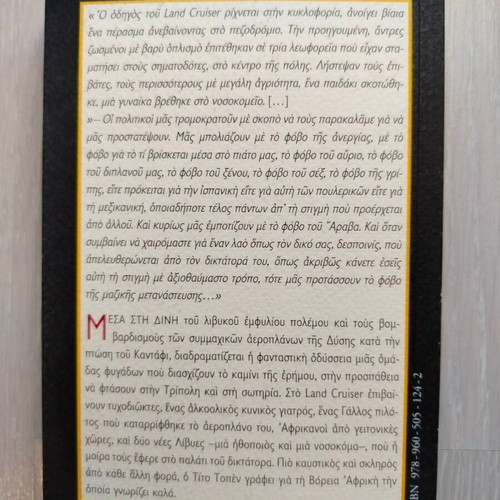 « Ὁ ὁδηγὸς τοῦ Land Cruiser ρίχνεται στὴν κυκλοφορία, ἀνοίγει βίαια
ἕνα πέρασμα ἀνεβαίνοντας στὸ πεζοδρόμιο. Τὴν προηγουμένη, ἄντρες
ζωσμένοι μὲ βαρὺ ὁπλισμὸ ἐπιτέθηκαν σὲ τρία λεωφορεία ποὺ εἶχαν στα-
ματήσει στοὺς σηματοδότες, στὸ κέντρο τῆς πόλης. Λήστεψαν τοὺς ἐπι-
βάτες, τοὺς περισσότερους μὲ μεγάλη ἀγριότητα, ἕνα παιδάκι σκοτώθη-
κε, μιὰ γυναίκα βρέθηκε στὸ νοσοκομεῖο. [...]
»– Οἱ πολιτικοὶ μᾶς τρομοκρατοῦν μὲ σκοπὸ νὰ τοὺς παρακαλᾶμε γιὰ νὰ
μᾶς προστατέψουν. Μᾶς μπολιάζουν μὲ τὸ φόβο τῆς ἀνεργίας, μὲ τὸ
φόβο γιὰ τὸ τί βρίσκεται μέσα στὸ πιάτο μας, τὸ φόβο τοῦ αὔριο, τὸ φόβο
τοῦ διπλανοῦ μας, τὸ φόβο τοῦ ξένου, τὸ φόβο τοῦ σέξ, τὸ φόβο τῆς γρί-
πης, εἴτε πρόκειται γιὰ τὴν ἱσπανικὴ εἴτε γιὰ αὐτὴ τῶν πουλερικῶν εἴτε γιὰ
τὴ μεξικανική, ὁποιαδήποτε τέλος πάντων ἀπ' τὴ στιγμὴ ποὺ προέρχεται
ἀπὸ ἀλλοῦ. Καὶ κυρίως μᾶς ἐμποτίζουν μὲ τὸ φόβο τοῦ Ἄραβα. Καὶ ὅταν
συμβαίνει νὰ χαιρόμαστε γιὰ ἕναν λαὸ ὅπως τὸν δικό σας, δεσποινίς, ποὺ
ἀπελευθερώνεται ἀπὸ τὸν δικτάτορά του, ὅπως ἀκριβῶς κάνετε ἐσεῖς
αὐτὴ τὴ στιγμὴ μὲ ἀξιοθαύμαστο τρόπο, τότε μᾶς προτάσσουν τὸ φόβο
τῆς μαζικῆς μετανάστευσης...»
ΜΕΣΑ ΣΤΗ ΔΙΝΗ τοῦ λιβυκοῦ ἐμφυλίου πολέμου καὶ τοὺς βομ-
βαρδισμοὺς τῶν συμμαχικῶν ἀεροπλάνων τῆς Δύσης κατὰ τὴν
πτώση τοῦ Καντάφι, διαδραματίζεται ἡ φανταστικὴ ὀδύσσεια μιᾶς ὁμά-
δας φυγάδων ποὺ διασχίζουν τὸ καμίνι τῆς ἐρήμου, στὴν προσπάθεια
νὰ φτάσουν στὴν Τρίπολη καὶ στὴ σωτηρία. Στὸ Land Cruiser ἐπιβαί-
νουν τυχοδιῶκτες, ἕνας ἀλκοολικὸς κυνικὸς γιατρός, ἕνας Γάλλος πιλό-
τος ποὺ καταρρίφθηκε τὸ ἀεροπλάνο του, Ἀφρικανοὶ ἀπὸ γειτονικὲς
χῶρες, καὶ δύο νέες Λίβυες –μιὰ ἠθοποιὸς καὶ μιὰ νοσοκόμα–, ποὺ ἡ
μοίρα τοὺς ἔφερε στὸ παλάτι τοῦ δικτάτορα. Πιὸ καυστικὸς καὶ σκληρὸς
ἀπὸ κάθε ἄλλη φορά, ὁ Τίτο Τοπὲν γράφει γιὰ τὴ Βόρεια Ἀφρικὴ τὴν
ὁποία γνωρίζει καλά.
BN 978-960-505-124-2